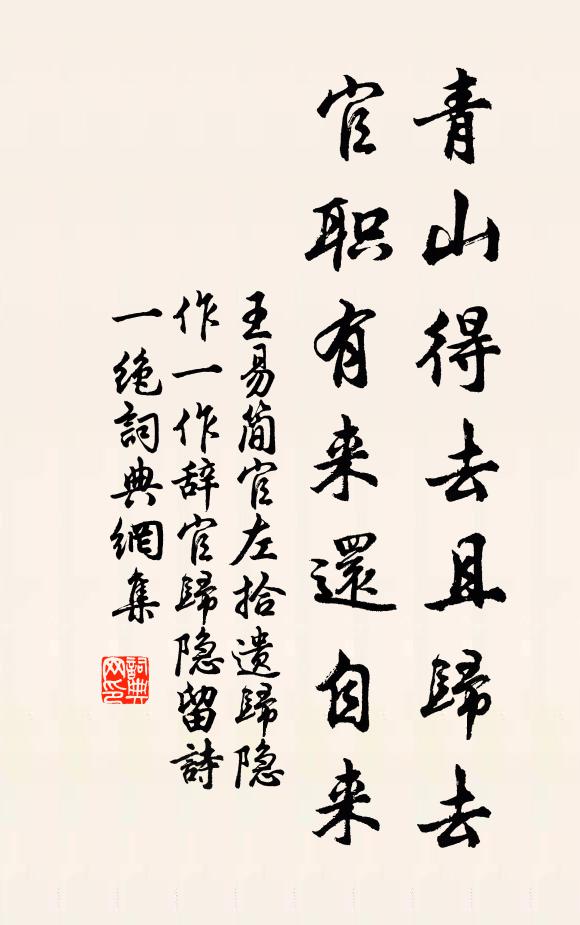 青山得去且歸去
官职有来還自来
王易简官左拾遗歸隐
作一作辞官歸隐留詩
一绝詞典網集
詞典
网印